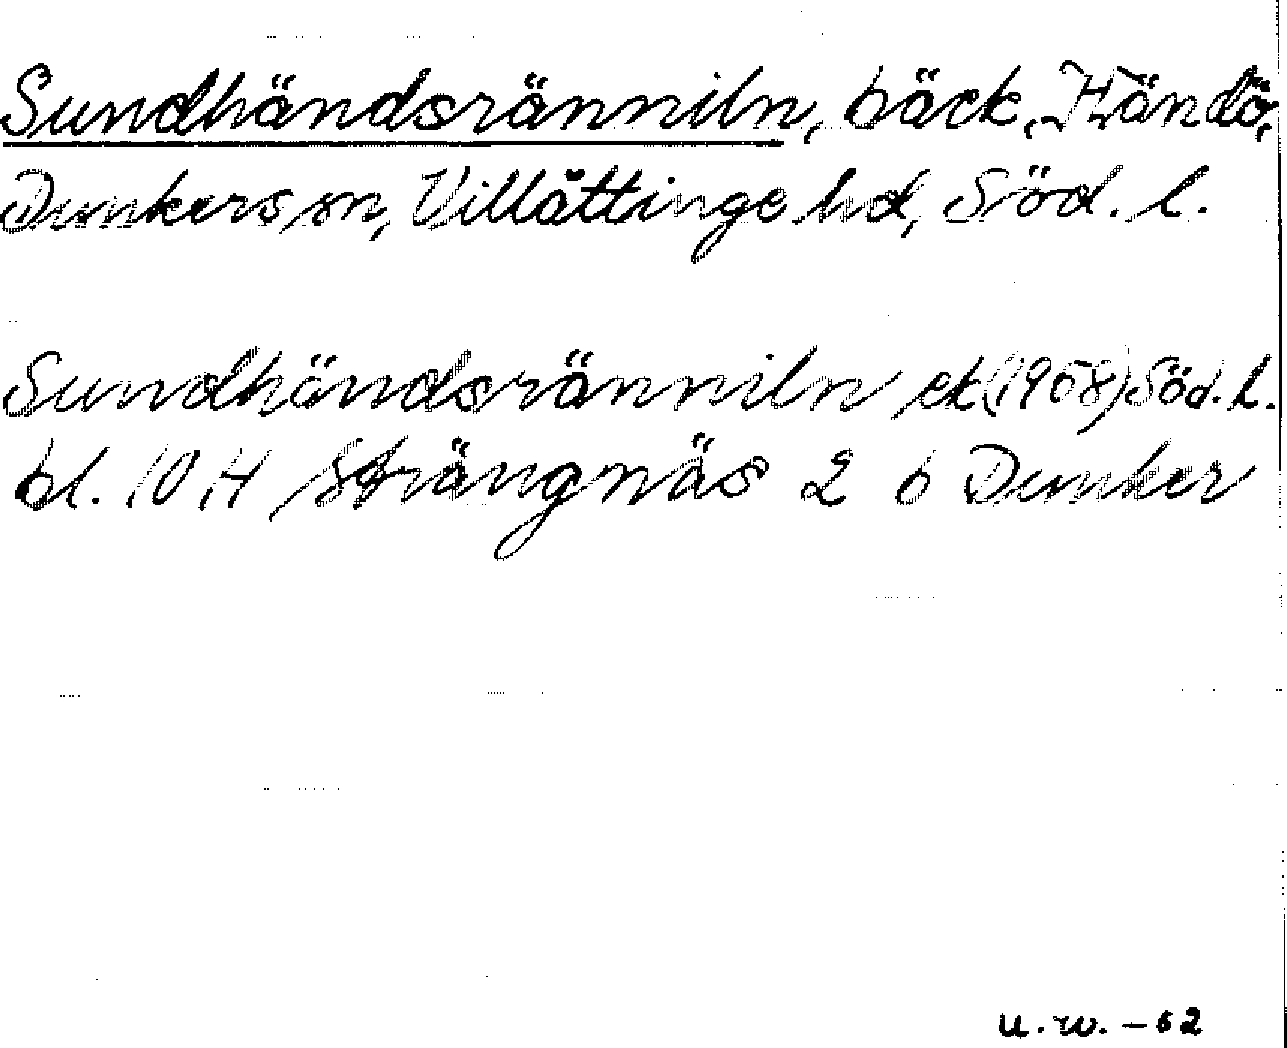 Sundhändsränniln, bäck, Händö,
Dunkers sn, Villåttinge hd, Söd. l.
Sundhändsränniln ek (1958) Söd. l.
bl. 10 H Strängnäs 2 b Dunker
u.w. -62